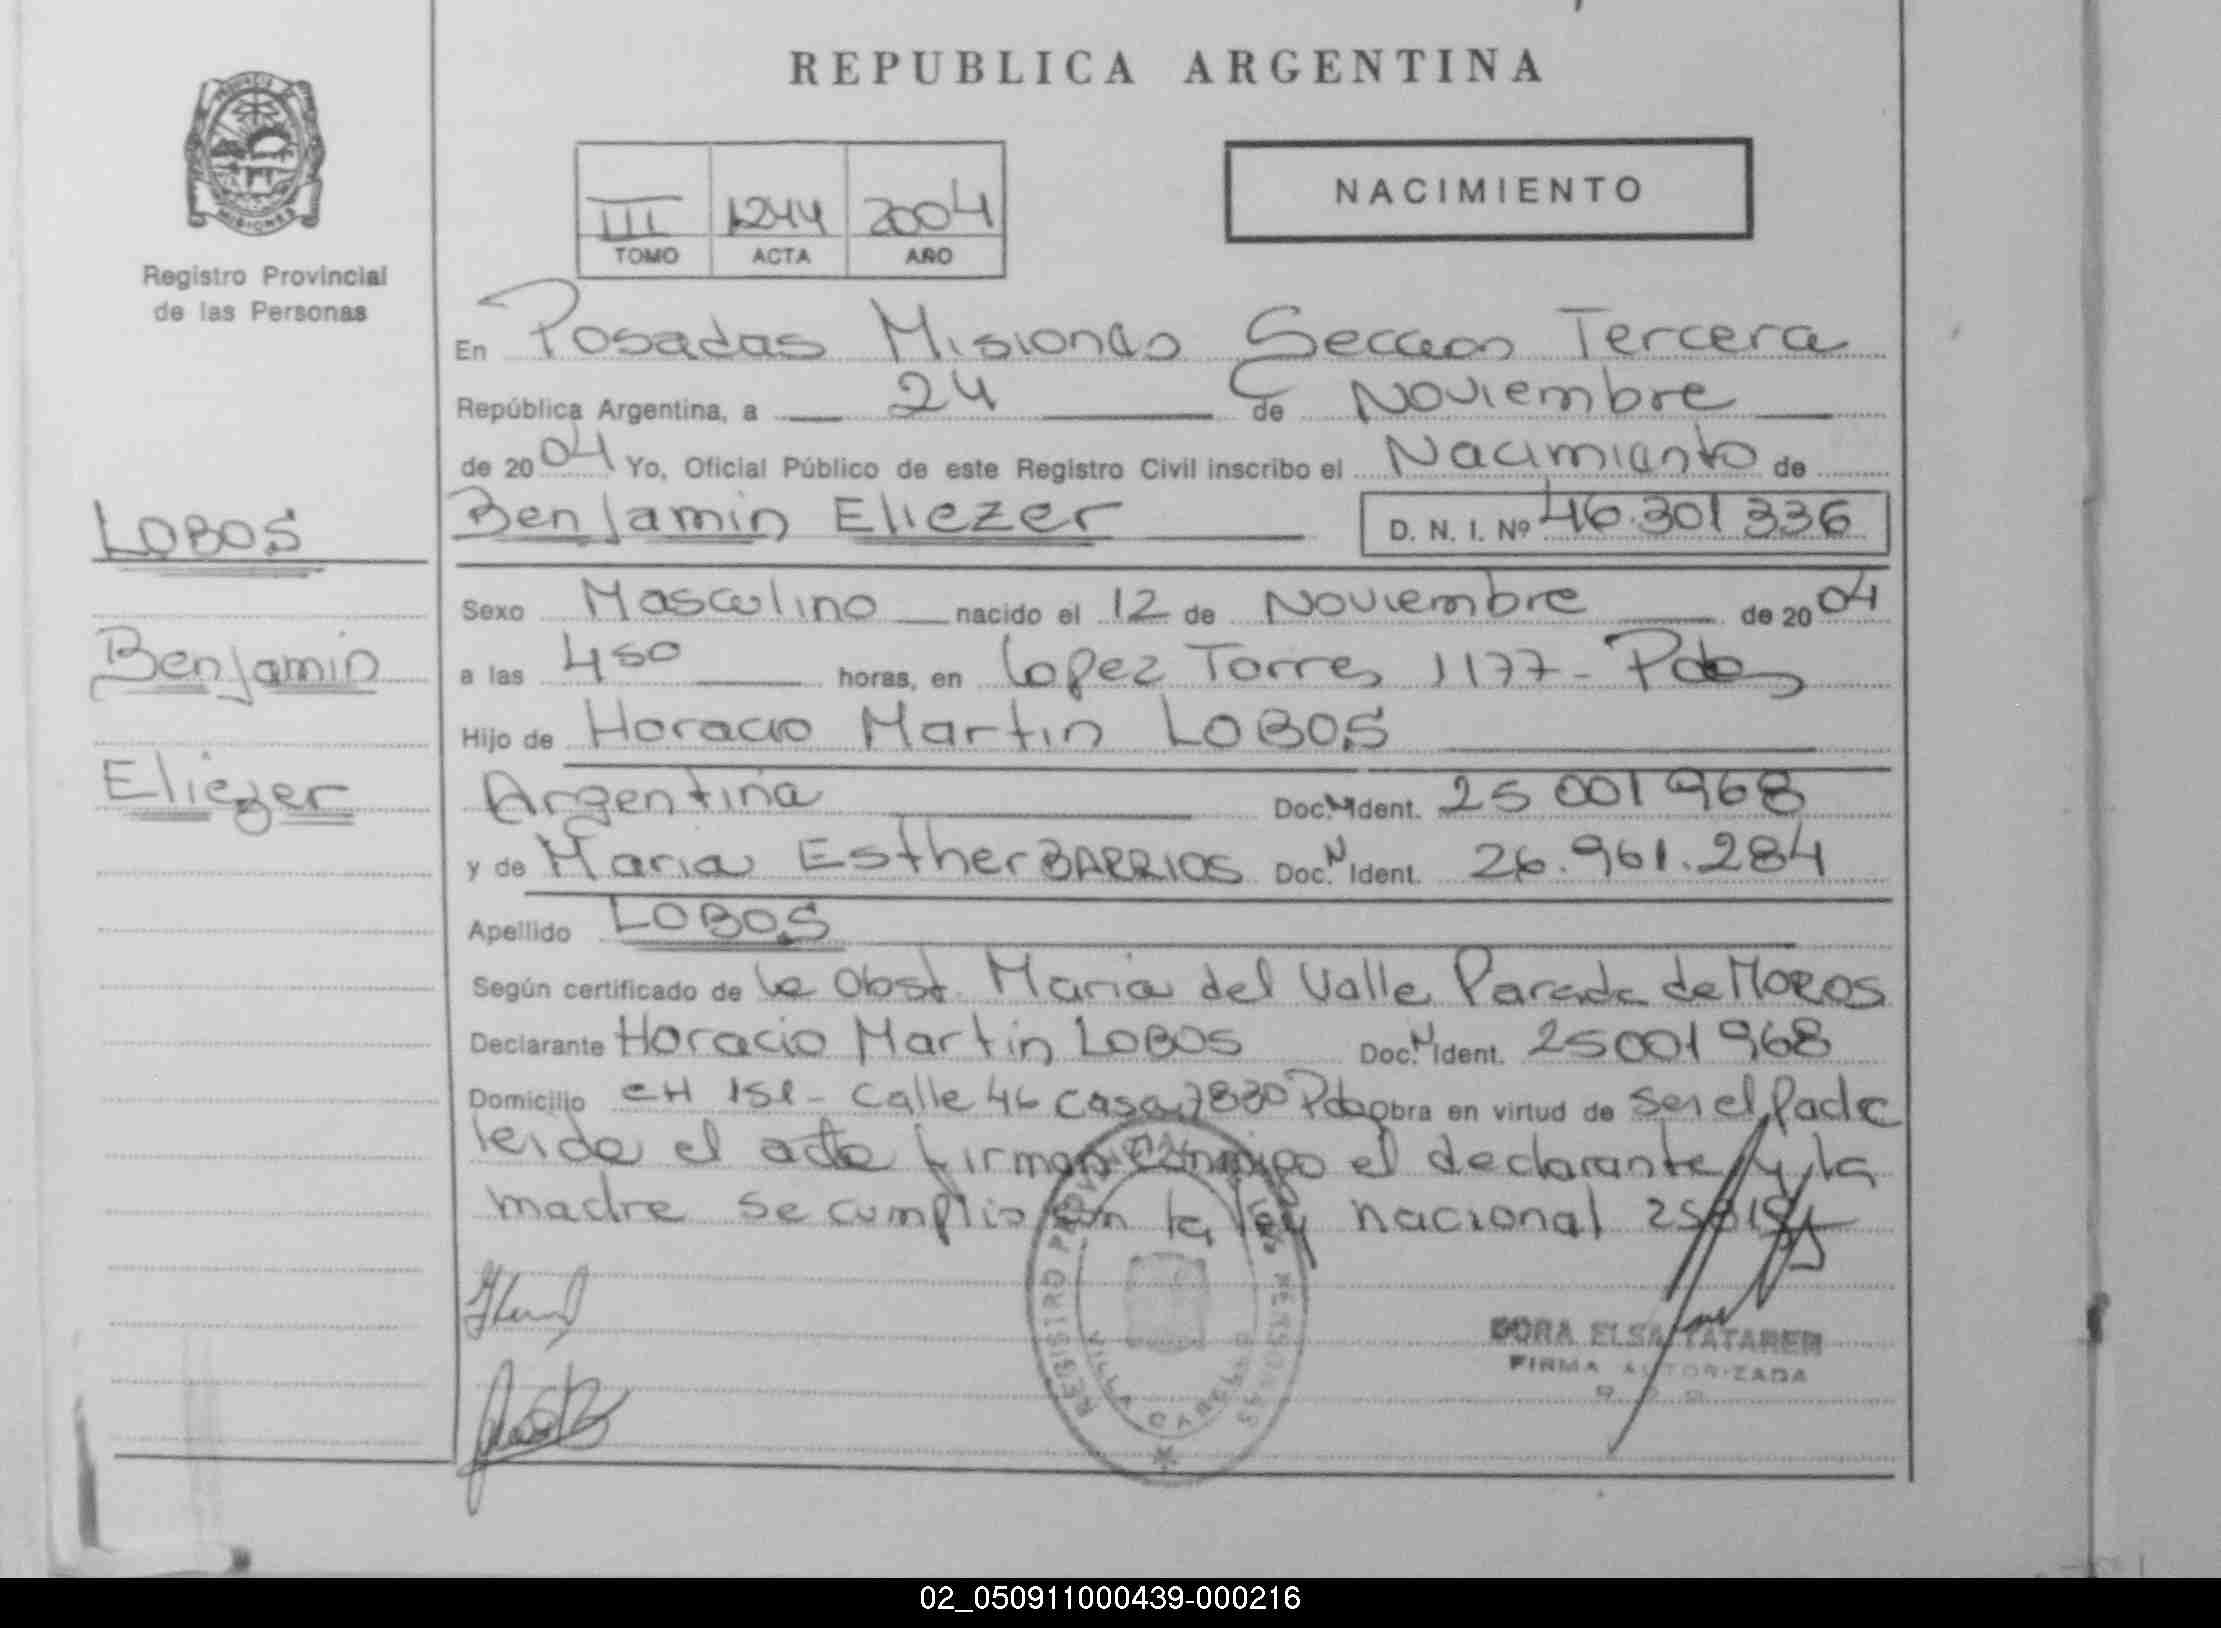 REPUBLICA ARGENTINA
PROVINCIA
MISIONES
Registro Provincial
de las Personas
III 1244 2004
TOMO ACTA AÑO
NACIMIENTO
En Posadas Misiones Seccion Tercera
República Argentina, a 24 de Noviembre
de 2004 Yo, Oficial Público de este Registro Civil inscribo el Nacimiento de
Benjamin Eliezer D. N. I. Nº 46.301 336
LOBOS
Benjamin
Eliezer
Sexo Masculino nacido el 12 de Noviembre de 2004
a las 450 horas, en Lopez Torres 1177 - Pdas
Hijo de Horacio Martin LOBOS
Argentina Doc. N Ident. 25 001 968
y de Maria Esther BARRIOS Doc. N Ident. 26.961.284
Apellido LOBOS
Según certificado de la Obst. Maria del Valle Parada de MOROS
Declarante Horacio Martin LOBOS Doc. N Ident. 25001968
Domicilio CH 151 - Calle 46 Casa 7830 Pdas obra en virtud de ser el Padre
leida el acta firman conmigo el declarante y la
madre se cumplio con la ley nacional
REGISTRO PROVINCIAL DE LAS PERSONAS
VILLA CABELLO
DORA ELSA TATAREN
FIRMA AUTORIZADA
02_050911000439-000216